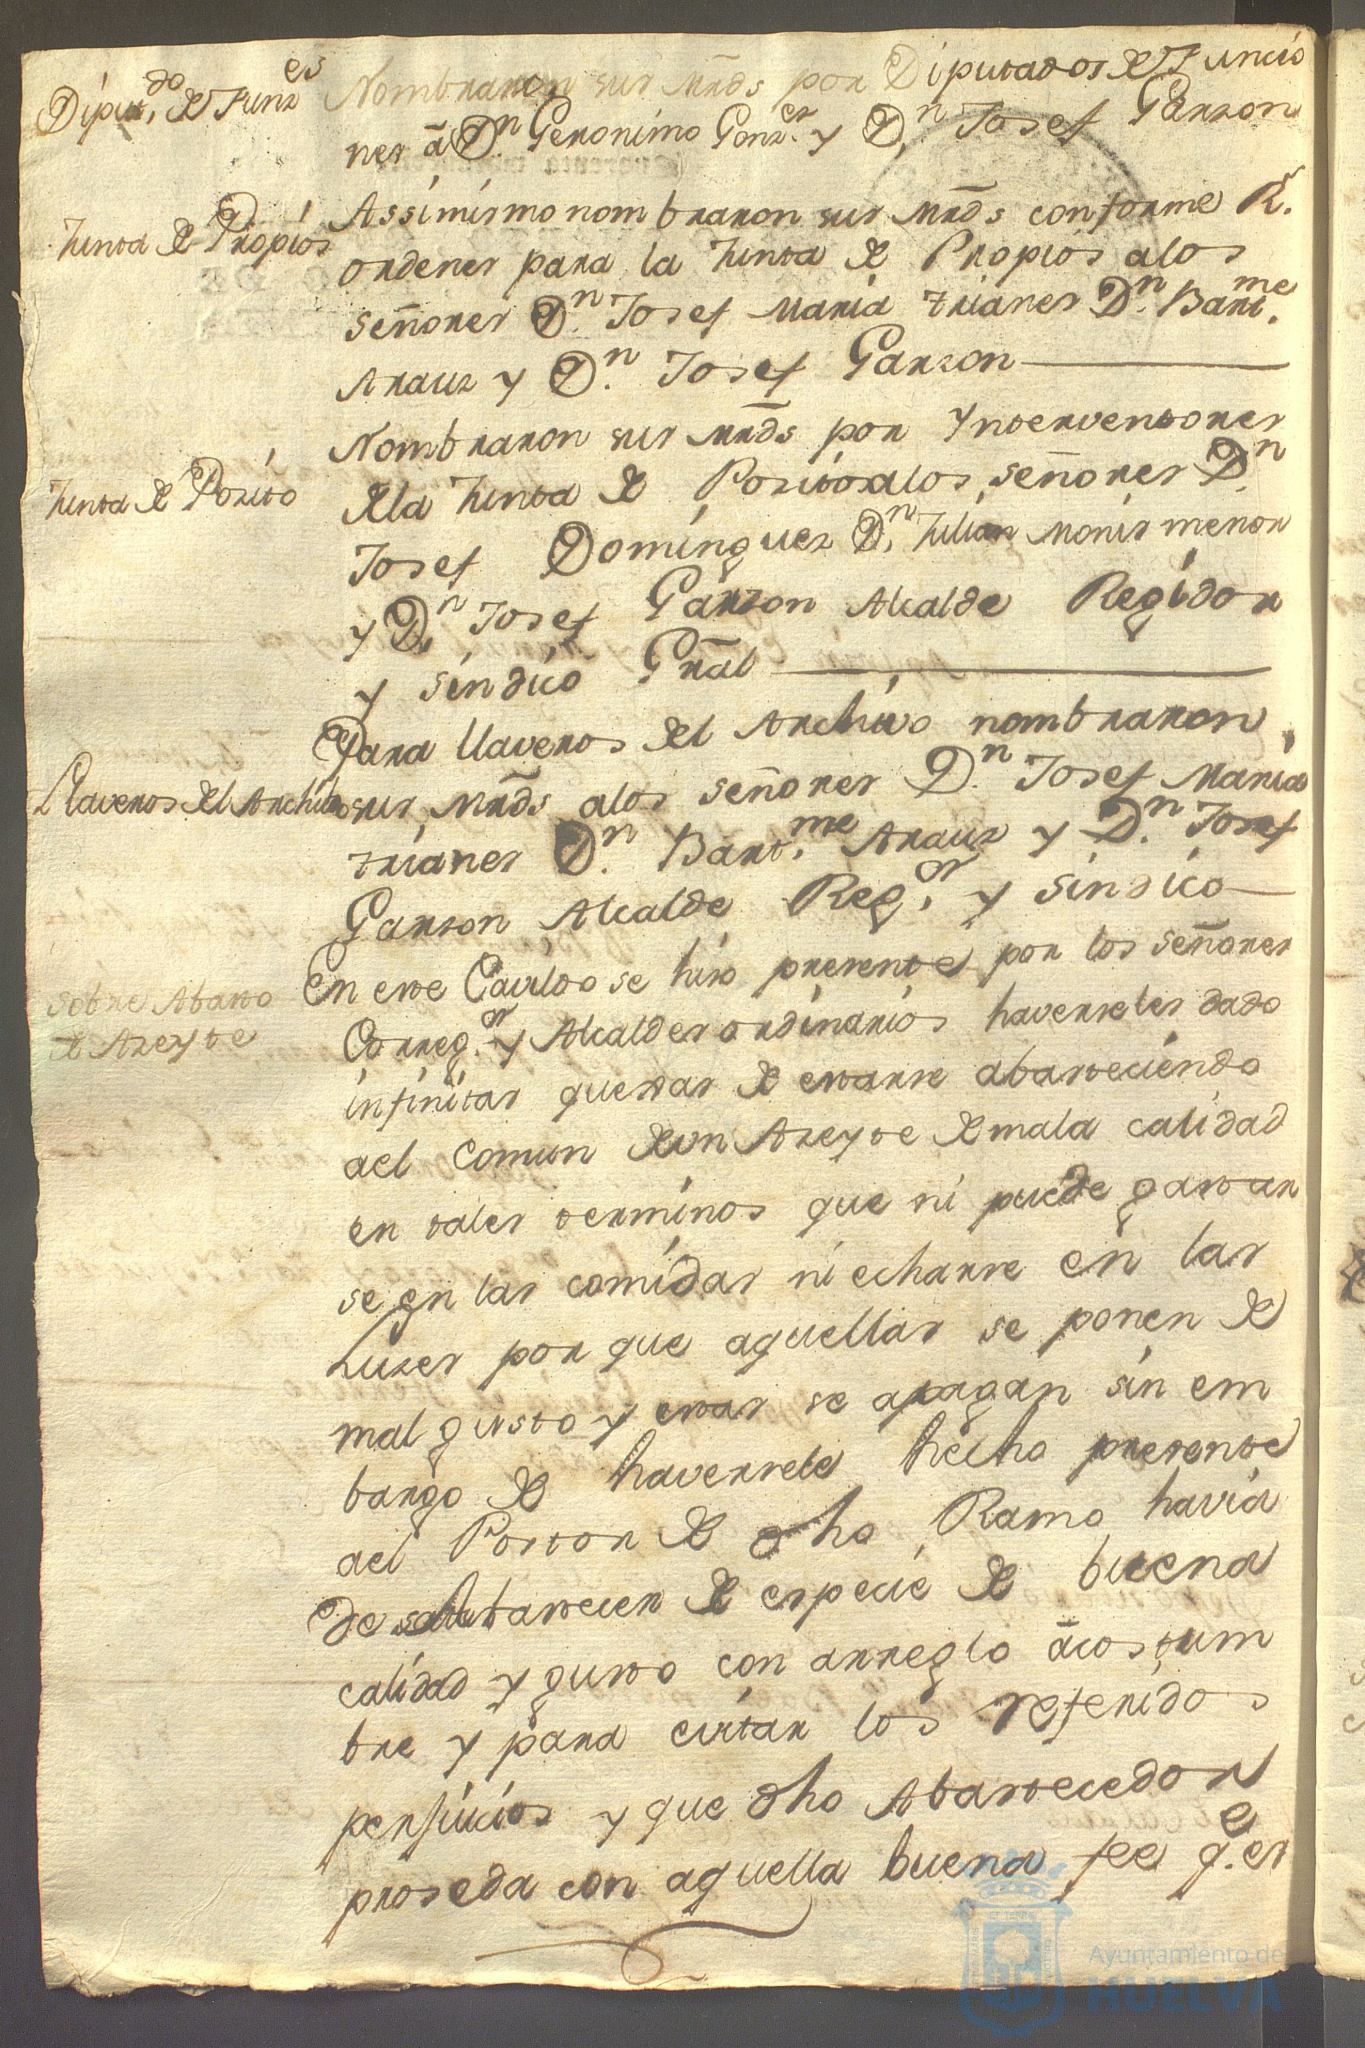 Diput.do de Funz.es
Nombraron sus mrds por Diputados de Funcio
nes a Dn Geronimo Gonz.es y Dn Josef Garzon
Junta de Propios
Assimismo nombraron sus mrds conforme Rs.
ordenes para la Junta de Propios alos
señores Dn Josef Maria trianes Dn Bart.me
Arauz y Dn Josef Garzon
Nombraron sus mrds por Ynterventores
Junta de Posito
dela Junta de Posito alos señores Dn
Josef Dominguez Dn Julian Monis menor
y Dn Josef Garzon Alcalde Regidor
y sindico Gral
Para llaveros del Archivo nombraron
Llaveros del Archibo
sus mrds alos señores Dn Josef Maria
trianes Dn Bart.me Arauz y Dn Josef
Garzon Alcalde Reg.or y sindico
En este Cavildo se hizo presente por los señores
sobre Abasto
de Azeyte
Correg.or y Alcaldes ordinarios haverseles dado
infinitas quexas de estarse abasteciendo
ael comun deun Azeyte de mala calidad
en tales terminos que ni puede gastar
se en las comidas ni echarse en las
Luzes por que aquellas se ponen de
mal gusto y estas se apagan sin em
bargo de haversele hecho presente
ael Postor de dho Ramo havia
de abastecer de especie de buena
calidad y gusto con arreglo acostum
bre y para evitar los referidos
perjuicios y que dho Abastecedor
proseda con aquella buena fee q.e es
Ayuntamiento de
HUELVA